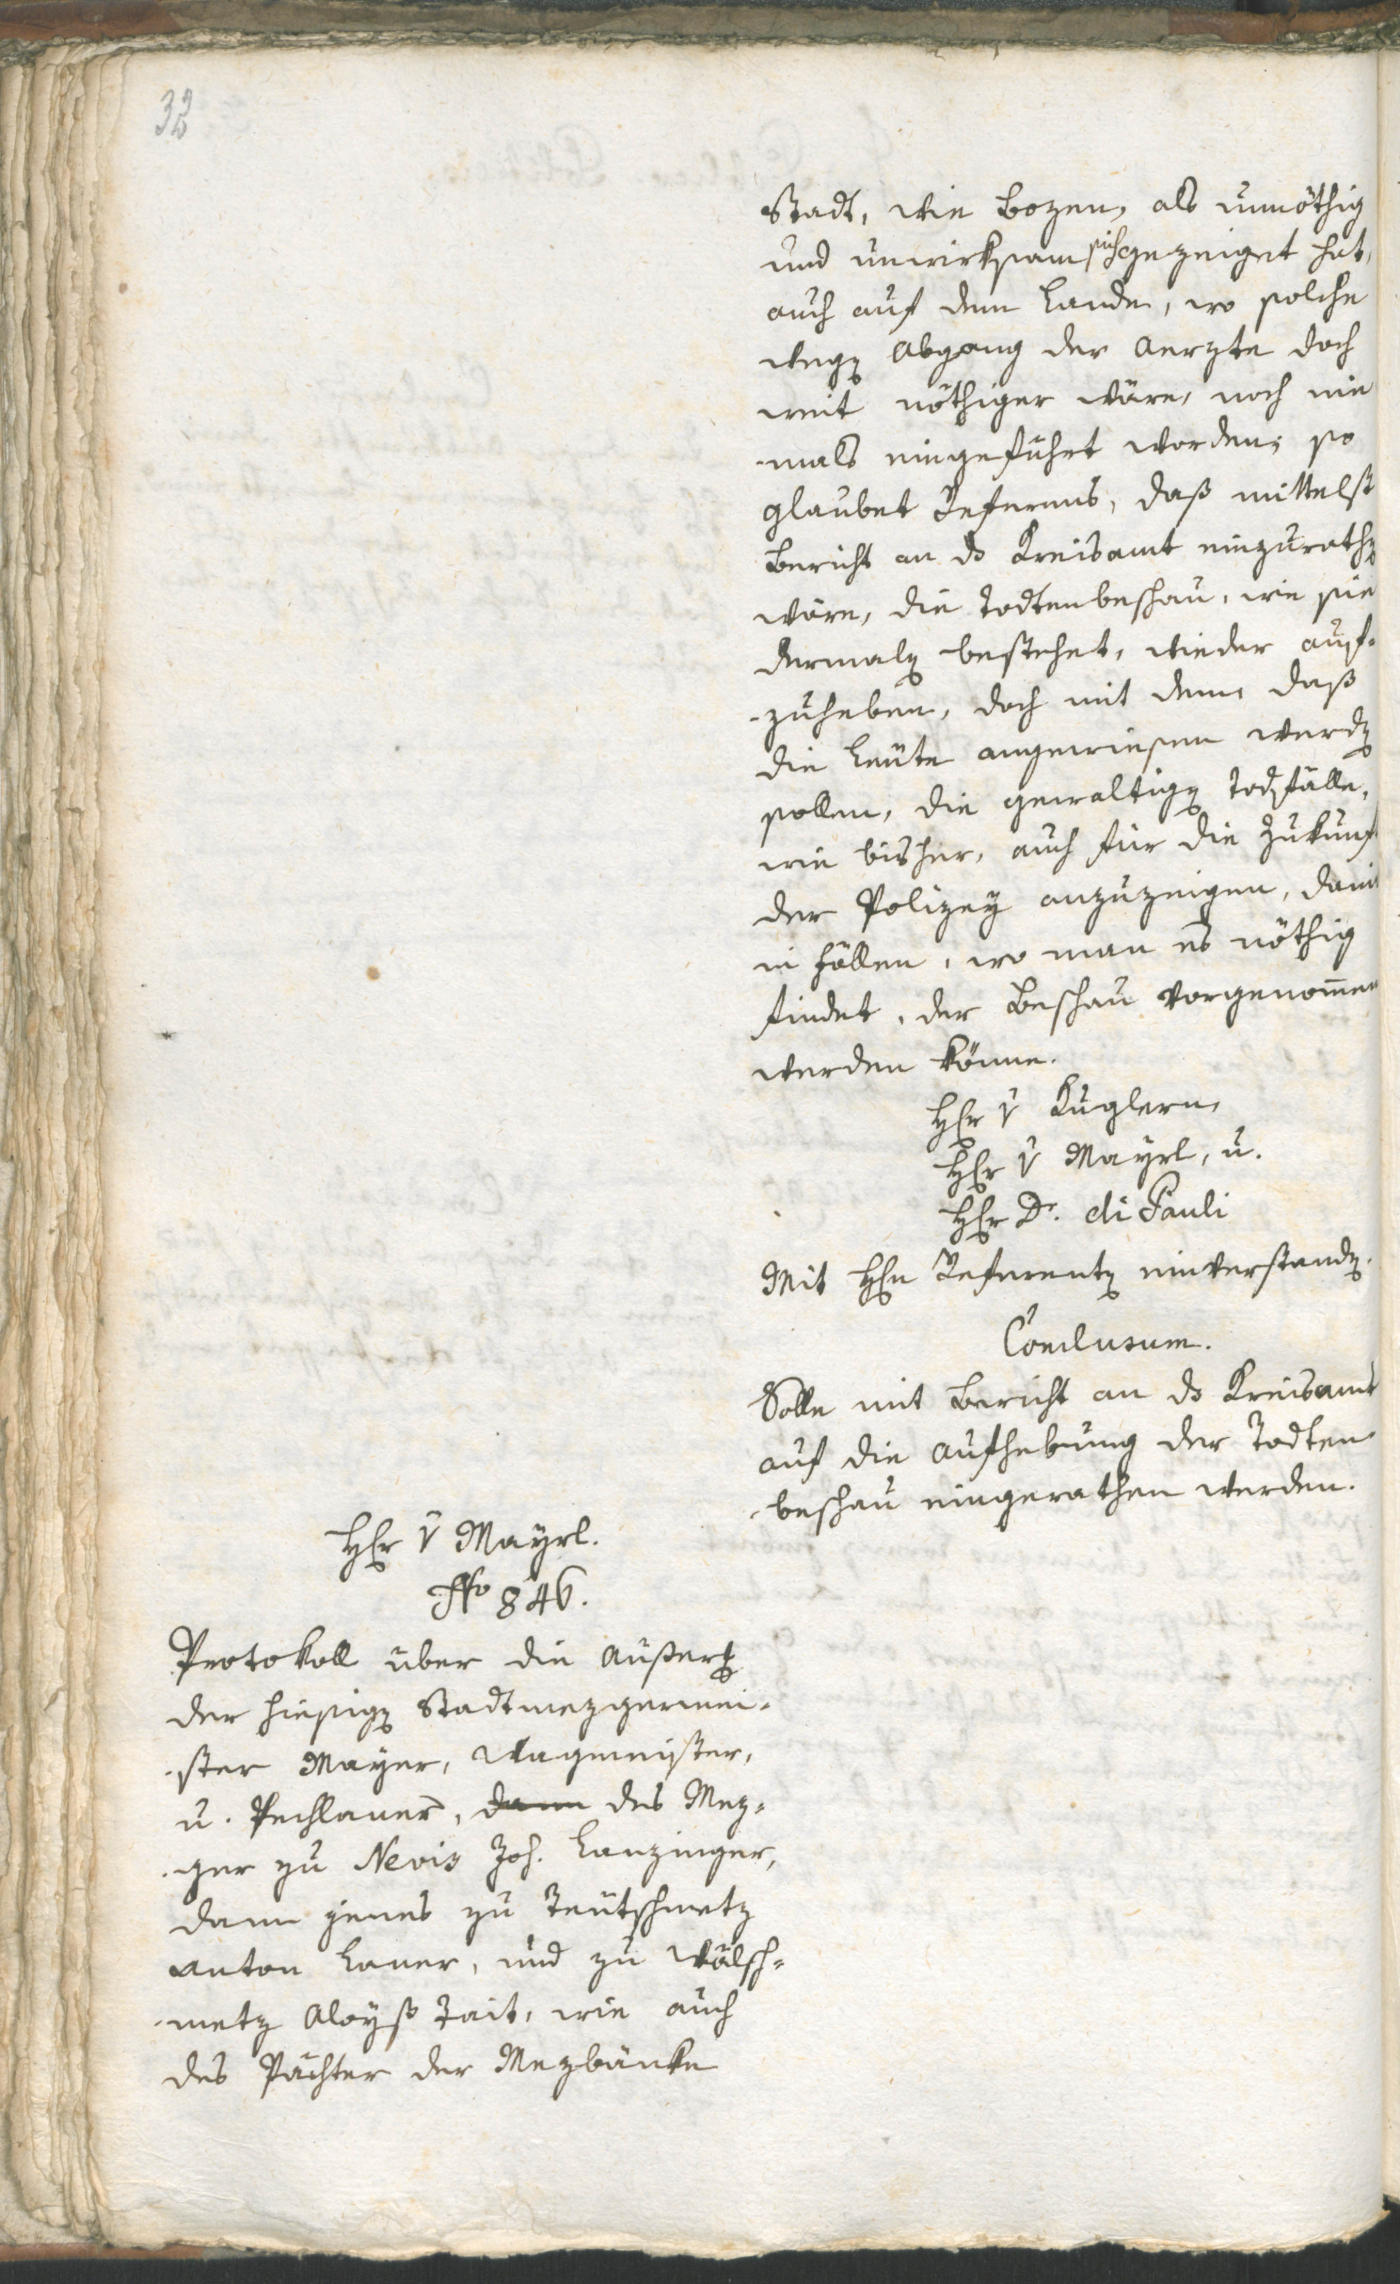 32
Stadt, wie Bozen, als unnöthig
und unwirksam sich gezeiget hat,
auch auf dem Lande, wo solche
wegen Abgang der Aerzte doch
weit nöthiger wäre, noch nie
-mals eingeführt worden; so
glaubet Referens, daß mittelst
Bericht an ds Kreisamt einzurathen
wäre, die Todtenbeschau, wie sie
dermalen bestehet, wieder auf-
-zuheben, doch mit deme daß
die Leute angewiesen werden
sollen, die gewaltigen Todfälle,
wie bisher, auch für die Zukunft
der Polizey anzuzeigen, damit
in Fällen, wo man es nöthig
findet, der Beschau vorgenommen
werden könne.
Hr v Kuglern,
Hr v Mayrl, u.
Hr Dr. di Pauli
Mit Hn Referenten einverstanden.
Conclusum.
Solle mit Bericht an ds Kreisamt
auf die Aufhebung der Todten-
-beschau eingerathen werden.
Hr v Mayrl.
No 846.
Protokoll über die Außerg
der hiesigen Stadtmezgermei-
-ster Mayer, Wagmeister,
u. Pechlaner, dann des Mez-
-ger zu Nevis Joh. Lanzinger,
dann jenes zu Teutschmetz
Anton Laner, und zu Wälsch-
-metz Aloyß Tait, wie auch
des Pächter der Mezbänke